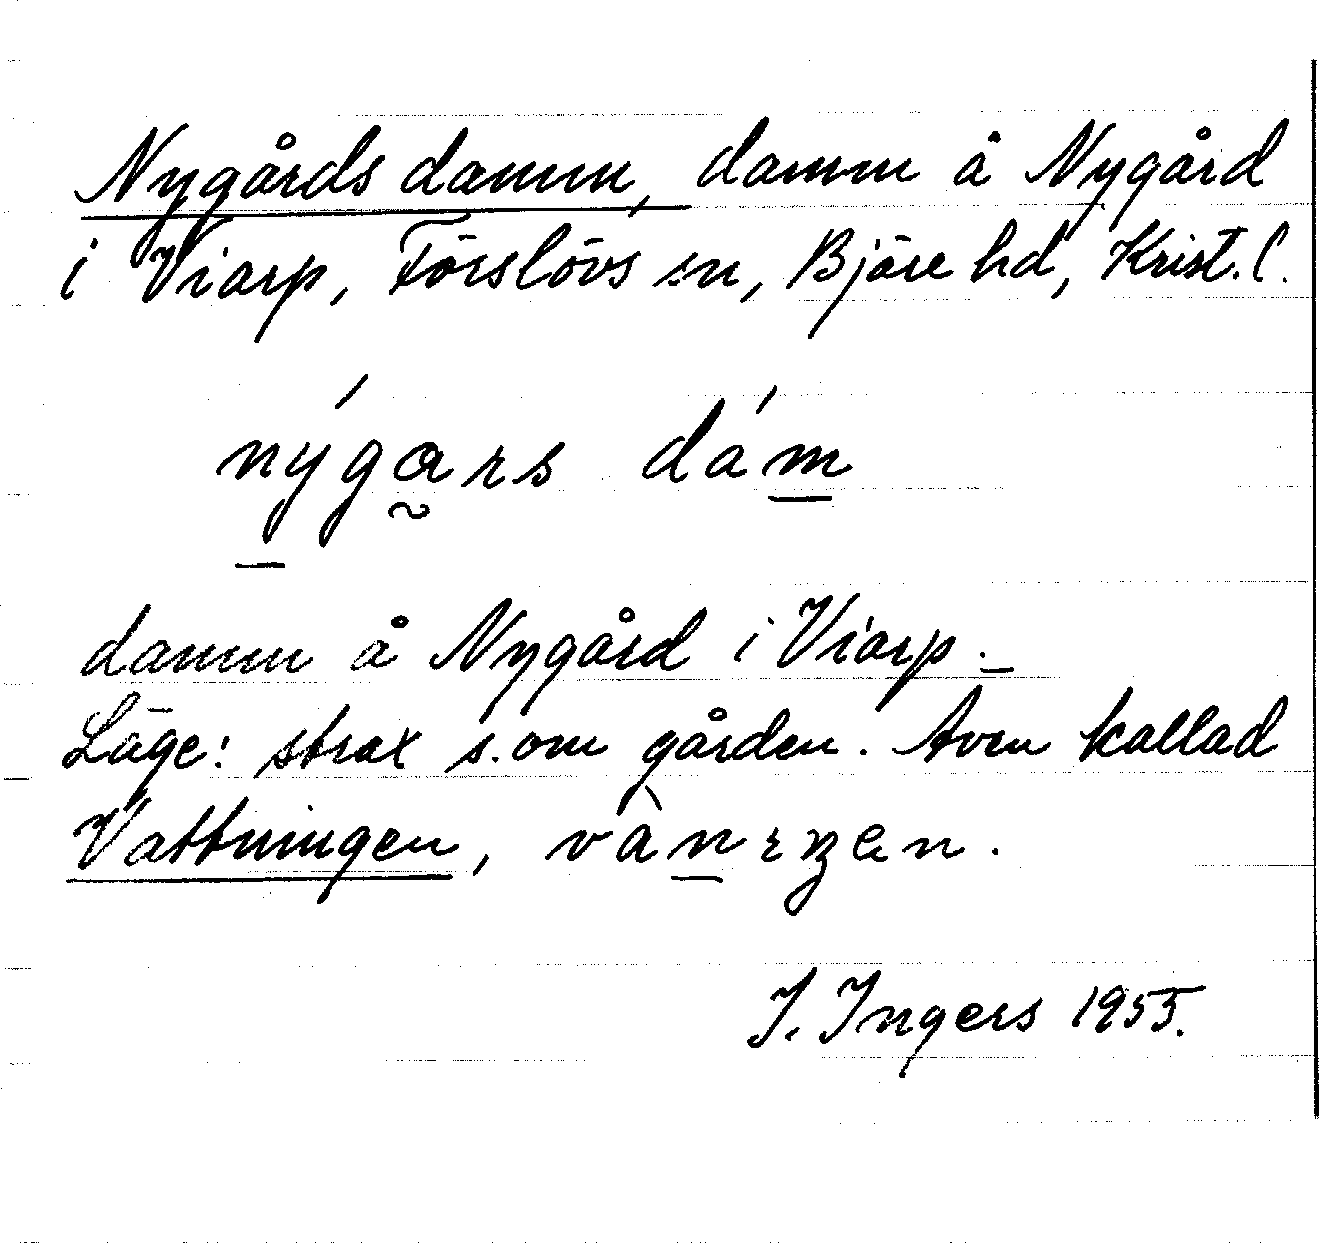 Nygårdsdamm, damm å Nygård
i Viarp, Förslövs sn, Bjäre hd, Krist. l.
nýgars dám
damm å Nygård i Viarp. –
Läge: strax s. om gården. Även kallad
Vattningen, vànıŋen.
I. Ingers 1955.